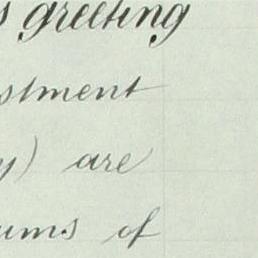 s greeting
stment
y) are
ums of